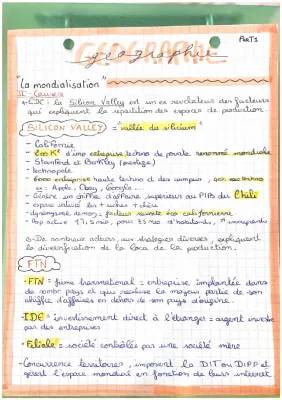 PART 1
GEOGRAPHIE
géographie
"La mondialisation"
II - Causes
A - EDC : la Silicon Valley est un ex révélateur des facteurs
qui expliquent la répartition des espaces de production.
SILICON VALLEY "vallée du silicium"
- Californie
d'une entreprise techno de pointe renommé mondiale
- Stanford et Berkley (prestige)
- technopole
- 6000 entreprise haute techno et des campus,
ex : Apple, Ebay, Google...
- Génère un chiffre d'affaire supérieur au PIB du Chili
- espace valorisé
B - De nombreux acteurs, aux stratégies diverses, expliquent
la diversification de la loca de la production.
FTN
- FTN = firme transnational : entreprise implantée dans
de nombr pays et qui réalise la moyenne partie de son
chiffre d'affaires en dehors de son pays d'origine.
- IDE = investissement direct à l'étranger = argent investi
par des entreprises
- Filiale = société contrôlée par une société mère
- Concurrence territoires, imposent la DIT ou DIPP et
gèrent l'espace mondial en fonction de leurs interet